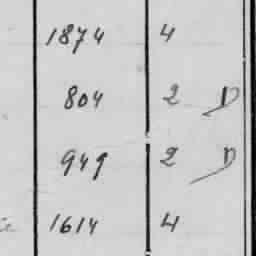 1874 4
804 2 D
949 2 D
1614 4